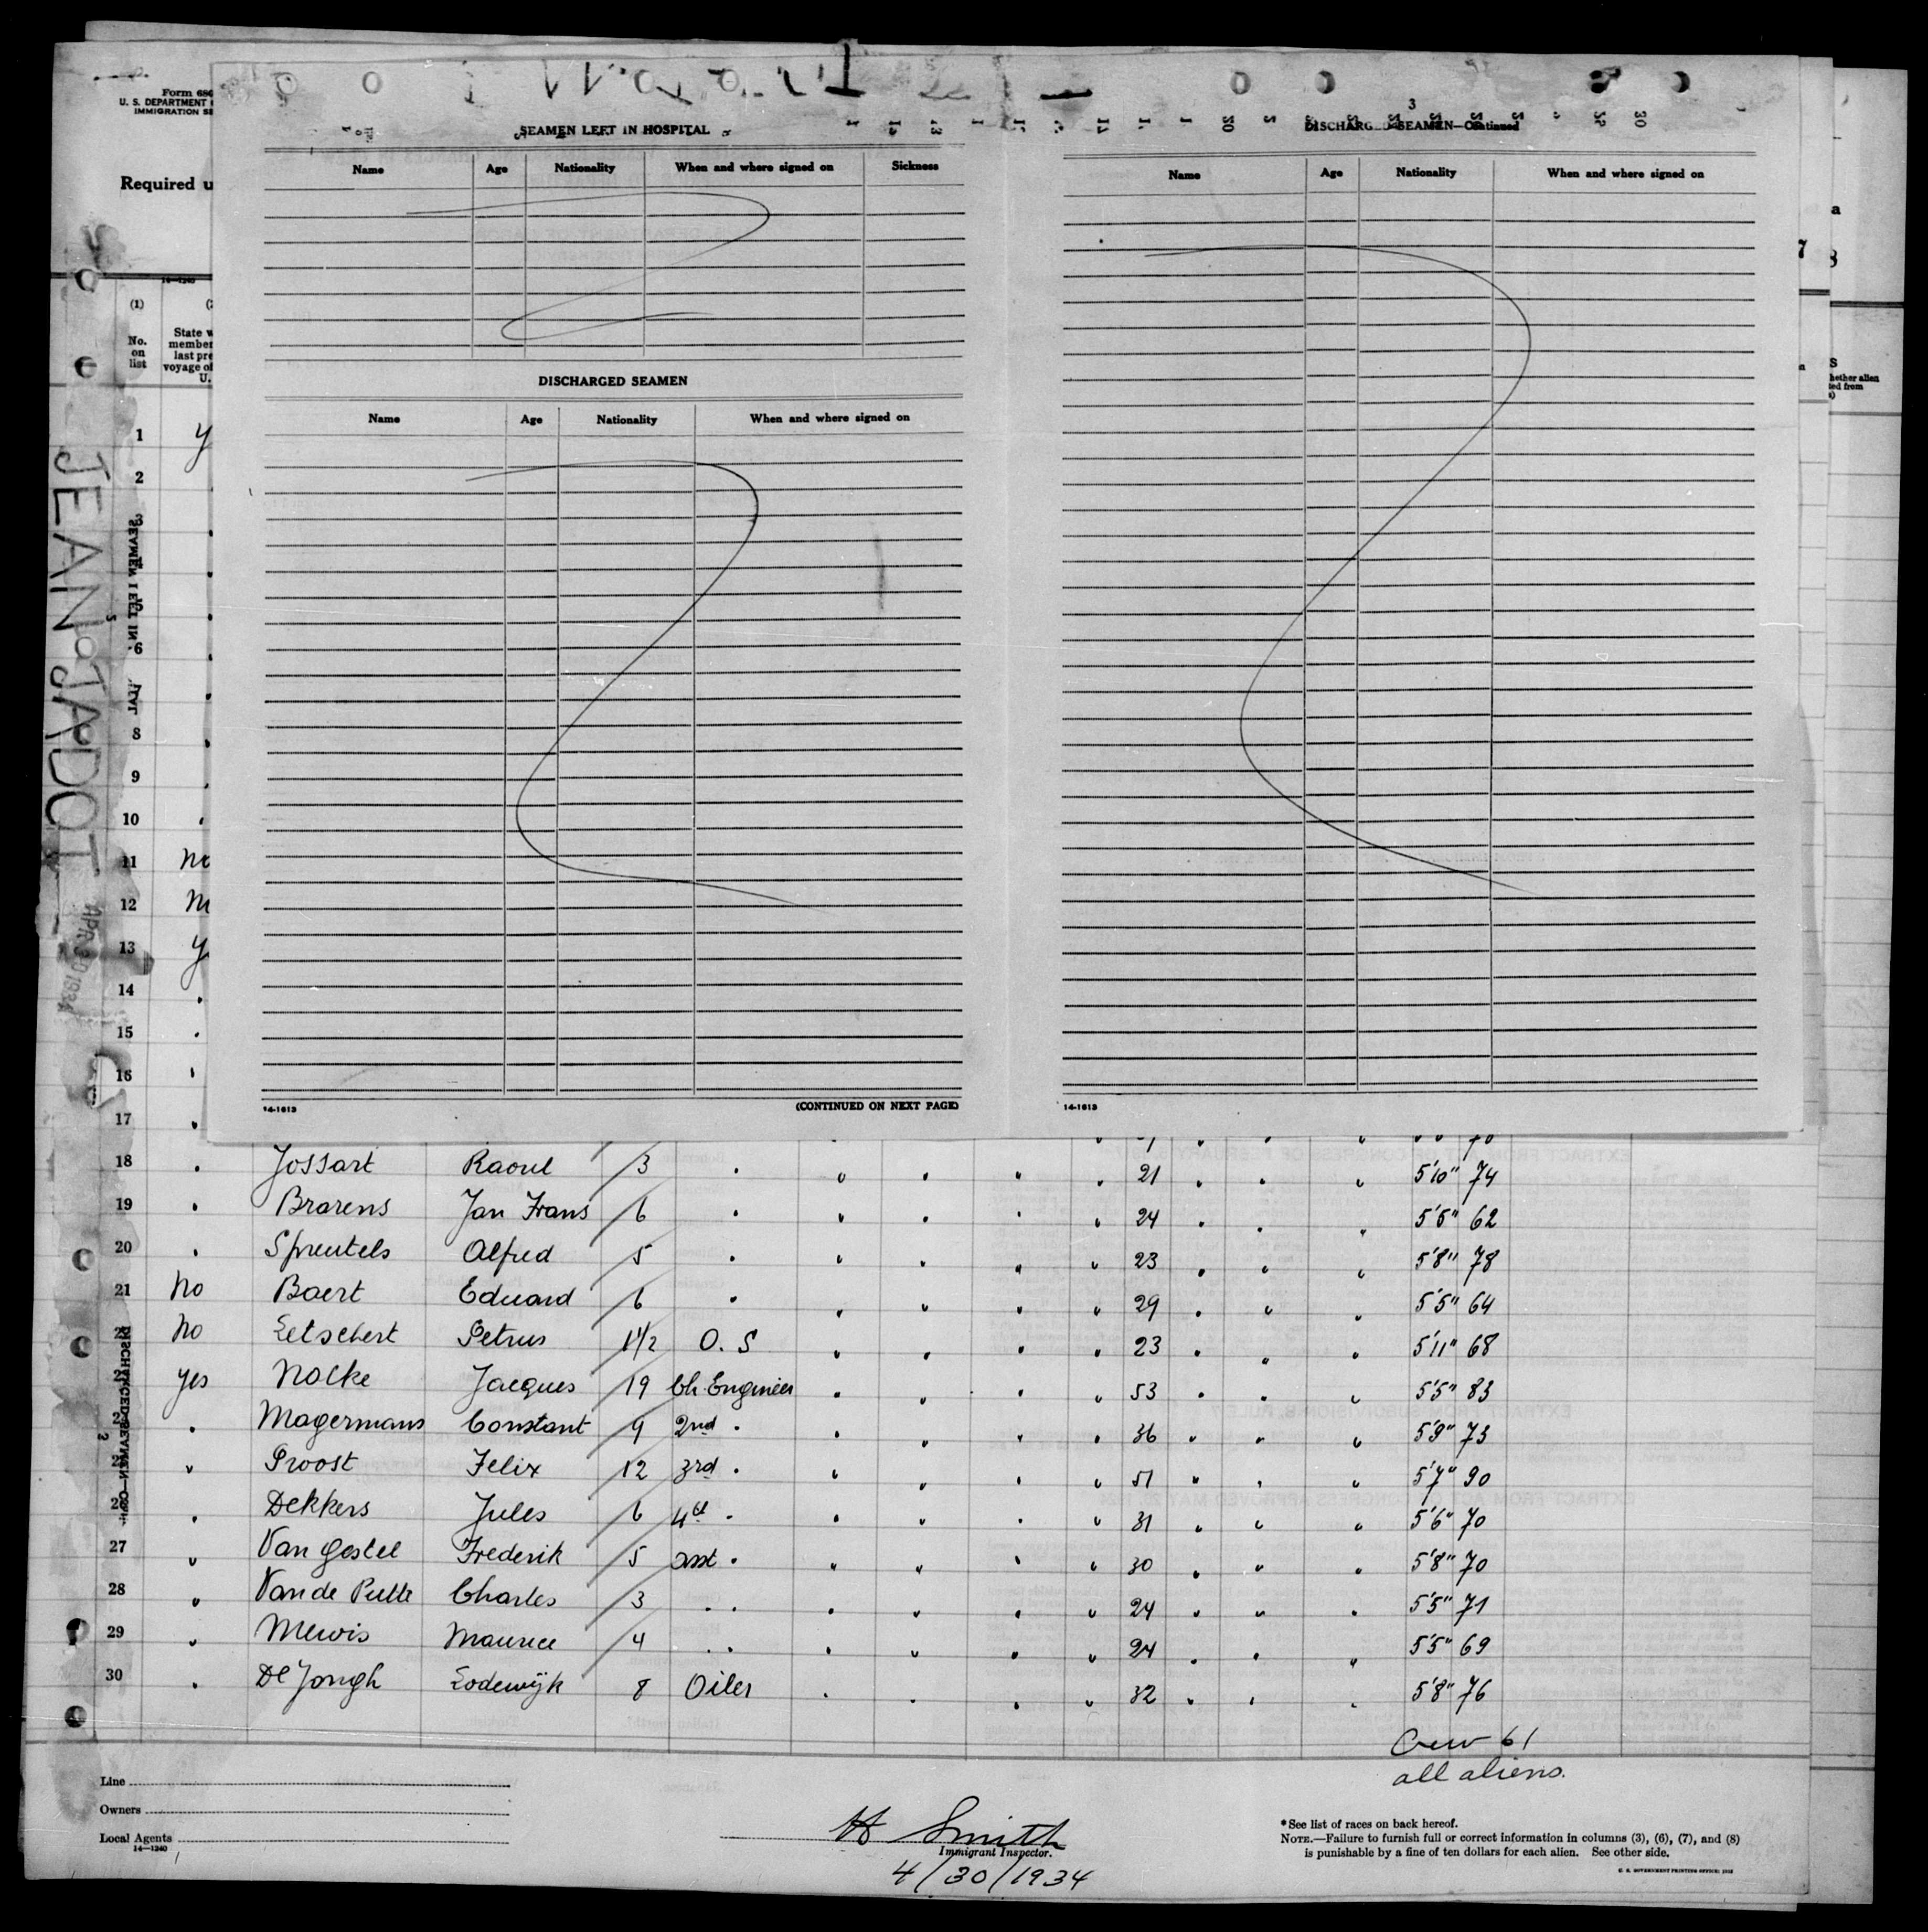 Form 680
U. S. DEPARTMENT
IMMIGRATION SE
Required u
14—1240
(1)
No. on list
State w
member
last pre
voyage of
U.
JEAN JADOT
APR 30 1934
SEAMEN LEFT IN HOSPITAL
Name Age Nationality When and where signed on Sickness
DISCHARGED SEAMEN
Name Age Nationality When and where signed on
14-1613
(CONTINUED ON NEXT PAGE)
3
DISCHARGED SEAMEN—Continued
Name Age Nationality When and where signed on
14-1613
1 y
2
3
5
6
7
8
9
10
11 no
12
13 y
14
15
16
17
18 " Jossart Raoul 3 " " " " " 21 " " " 5'10" 74
19 " Brarens Jan Frans 6 " " " " " 24 " " " 5'5" 62
20 " Spreutels Alfred 5 " " " " " 23 " " " 5'8" 78
21 No Baert Eduard 6 " " " " " 29 " " " 5'5" 64
No Letschert Petrus 1 1/2 O. S " " " " 23 " " " 5'11" 68
yes Nolke Jacques 19 Ch. Engineer " " " " 53 " " " 5'5" 83
" Magermans Constant 9 2nd " " " " " 36 " " " 5'9" 73
" Proost Felix 12 3rd " " " " " 51 " " " 5'7" 90
" Dekkers Jules 6 4th " " " " " 31 " " " 5'6" 70
27 " Van Gestel Frederik 5 asst " " " " " 30 " " " 5'8" 70
28 " Van de Putte Charles 3 " " " " " " 24 " " " 5'5" 71
29 " Mewis Maurice 4 " " " " " " 24 " " " 5'5" 69
30 " De Jongh Lodewijk 8 Oiler " " " " 32 " " " 5'8" 76
Crew 61
all aliens.
Line
Owners
Local Agents
14—1240
H Smith
Immigrant Inspector.
4/30/1934
*See list of races on back hereof.
NOTE.—Failure to furnish full or correct information in columns (3), (6), (7), and (8)
is punishable by a fine of ten dollars for each alien. See other side.
U. S. GOVERNMENT PRINTING OFFICE: